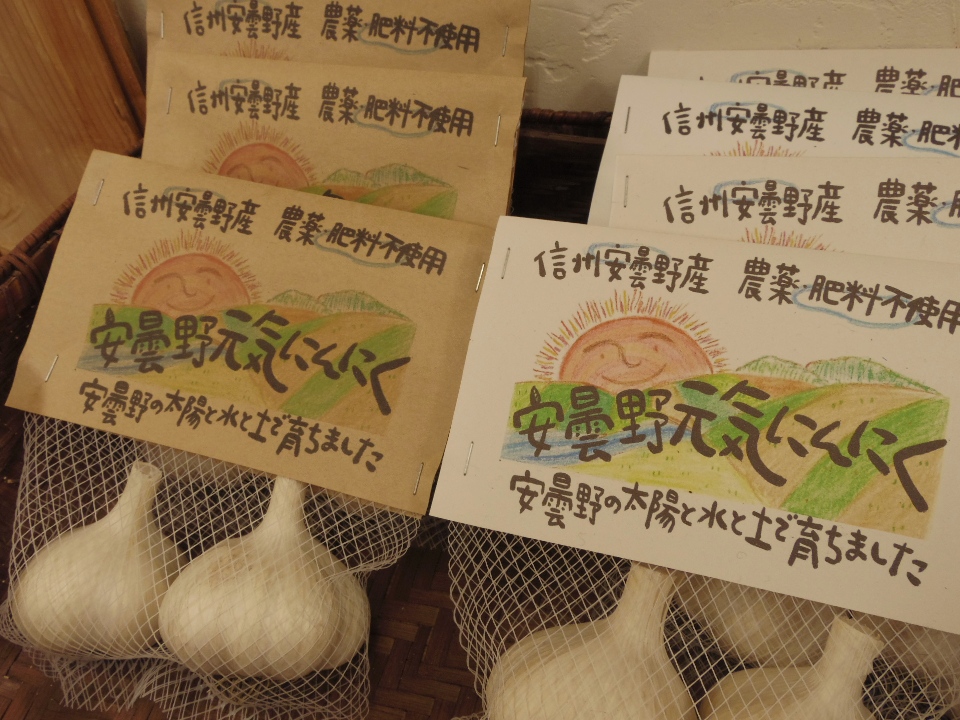 信州安曇野産 農薬・肥料不使用
信州安曇野産 農薬・肥料不使用
信州安曇野産 農薬・肥料不使用
安曇野元気にんにく
安曇野の太陽と水と土で育ちました
安曇野産 農薬・肥
信州安曇野産 農薬・肥料
信州安曇野産 農薬・
信州安曇野産 農薬・肥料不使用
安曇野元気にんにく
安曇野の太陽と水と土で育ちました